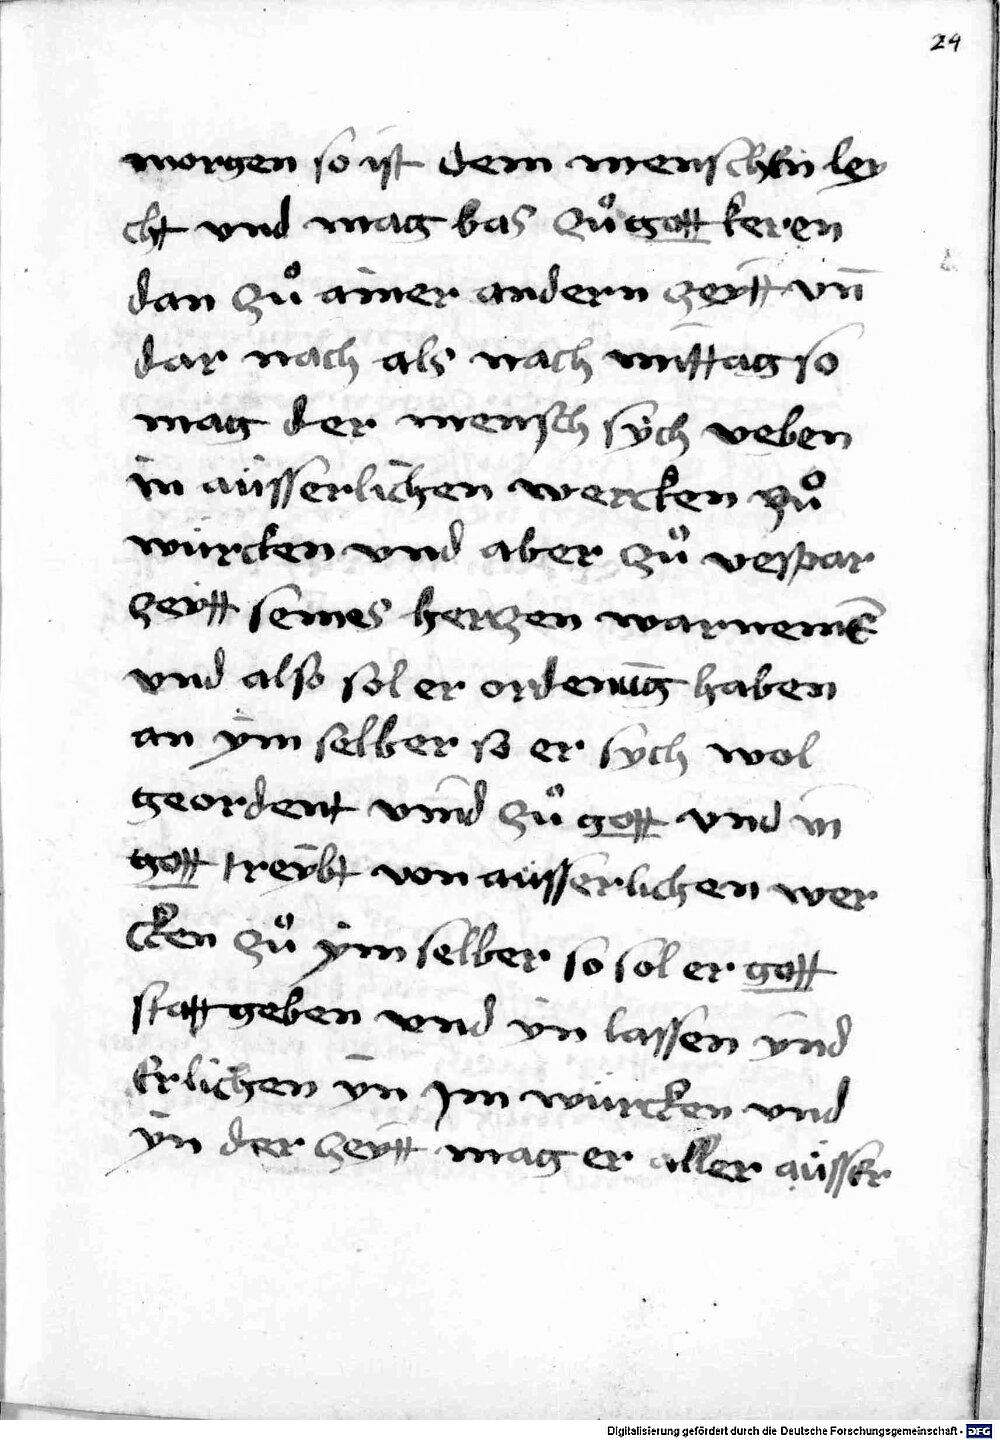 24
morgen so ist dem menschen ley
cht vnd mag bas zů gott keren
dan zů ainer andern zeytt vn̄
dar nach als nach mittag so
mag der mensch sych veben
in aüsserlichen wercken zů
würcken vnd aber zů vespar
zeytt seines herzen warnemē
vnd also sol er ordenūg haben
an ym selber so er sych wol
geordent vnnd zů gott vnd in
gott treybt von aüsserlichen wer
cken zů ym selber so sol er gott
statt geben vnd yn lassen ynd
erlichen yn Im würcken vnd
yn der zeytt mag er aller aüsser
Digitalisierung gefördert durch die Deutsche Forschungsgemeinschaft - DFG